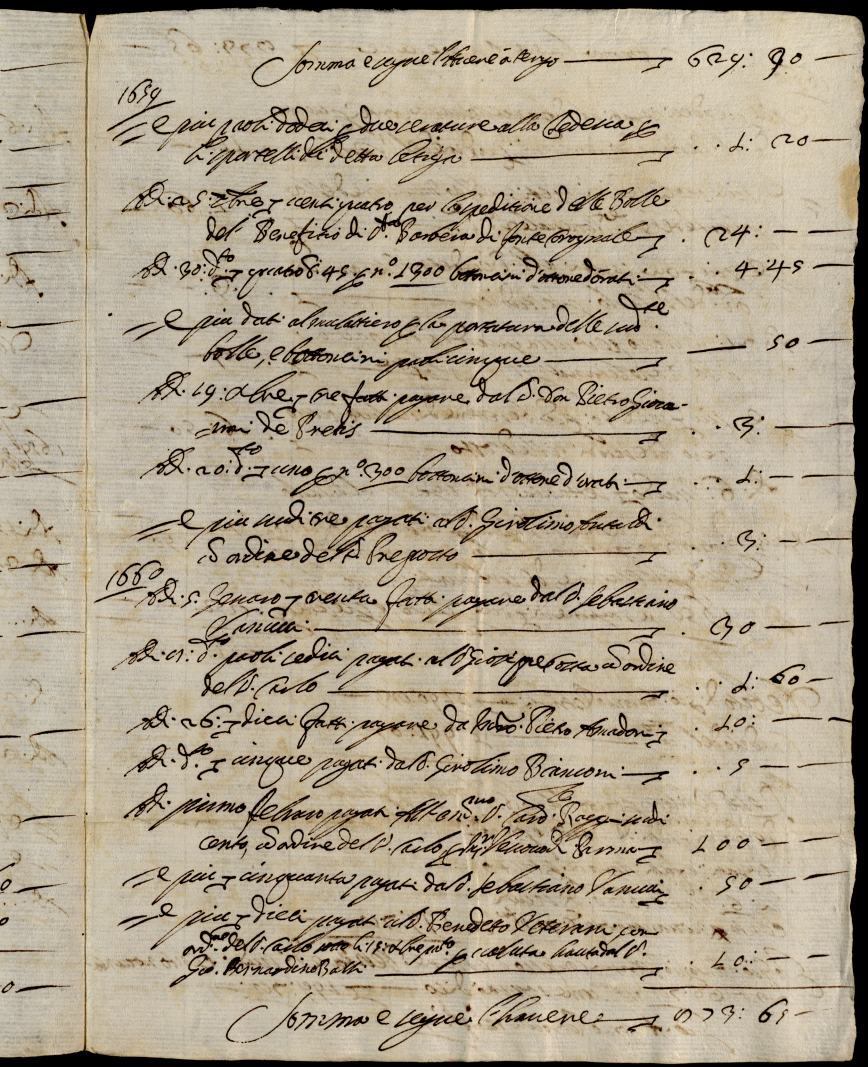 Somma e segue l'havere a tergo — 629: 90 —
1659
= E più paoli dodeci per due serature alla Tedesca per
li sportelli di detta — . . 1: 20 —
Adì. 25: 9bre ꝟ venti quatro per la speditione delle Bolle
del Benefitio di S.ta Barbera di — . 24: — —
Adì. 30: d.to ꝟ quatro b. 45 per n.o 1300 bottoncini d'ottone d'orati — . . 4: 45 —
= E più dati al mulattiero per la portatura delle sud.te
bolle, e bottoncini paoli cinque — — 50 —
Adì. 19: Xbre ꝟ tre fatti pagare dal S. Don Pietro Giova-
nni de Pretis — . . 3: — —
Adì. 20: d.to ꝟ uno per n.o 300 bottoncini d'ottone d'orati — . . 1: — —
= E più scudi tre pagati al S. Girolimo
d'ordine del S. Preposto — . . 3: — —
1660
Adì. 5. Genaro ꝟ trenta fatti pagare dal S. Sebastiano
Vanucci — . 30 — —
Adì. d.to paoli sedici pagati al S. Gioseppe d'ordine
del S. Carlo — . . 1: 60 —
Adì. 26: ꝟ dieci fatti pagare da Pietro Amadori — . 10: — —
Adì. d.to ꝟ cinque pagati dal S. Girolimo Bianconi — . . 5 — —
Adì. primo Febraro pagati all' S. Card. scudi
cento, d'ordine del S. Carlo per — 100 — —
= E più ꝟ cinquanta pagati dal S. Sebastiano Vanucci . 50 — —
= E più ꝟ dieci pagati al S. Benedetto Veterani con
ord.ne del S. Carlo per valuta hauta dal S.
Gio. Bernardino — . 10: — —
Somma e segue l'havere — 973: 65 —